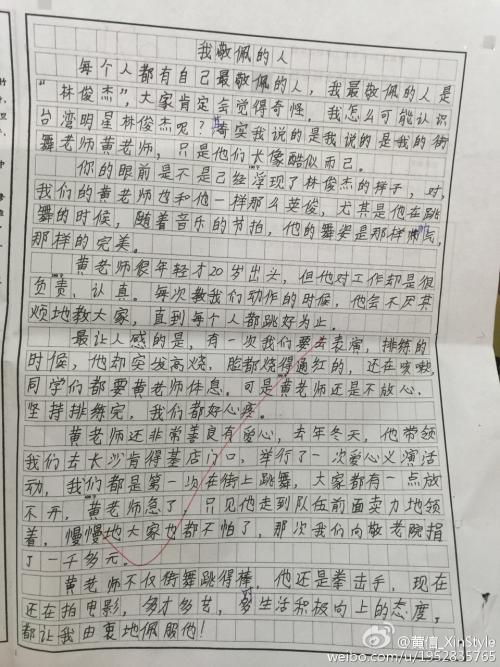 我敬佩的人
每个人都有自己最敬佩的人，我最敬佩的人是
“林俊杰”，大家肯定会觉得奇怪，我怎么可能认识
台湾明星林俊杰呢？其实我说的是我说的是我的街
舞老师黄老师，只是他们大像酷似而已。
你的眼前是不是己经浮现了林俊杰的样子，对，
我们的黄老师也和他一样那么英俊，尤其是他在跳
舞的时候，随着音乐的节拍，他的舞姿是那样
那样的完美。
黄老师很年轻才20岁出头，但他对工作却是很
负责、认真。每次教我们动作的时候，他会不厌其
烦地教大家，直到每个人都跳好为止。
最让人感的是，有一次我们要去表演，排练的
时候，他却突发高烧，脸都烧得通红的，还在咳嗽，
同学们都要黄老师休息。可是黄老师还是不放心，
坚持排练完，我们都好心疼。
黄老师还非常善良有爱心，去年冬天，他带领
我们去长沙肯得基店门口，举行了一次爱心义演活
动，我们都是第一次在街上跳舞，大家都有一点放
不开，黄老师急了，只见他走到队伍前面卖力地领
着，慢慢地大家也都不怕了，那次我们向敬老院捐
了一千多元。
黄老师不仅街舞跳得棒，他还是拳击手，现在
还在拍电影，多才多艺，生活积极向上的态度，
都让我由衷地佩服他！
@黄信_XinStyle
weibo.com/u/1952835765